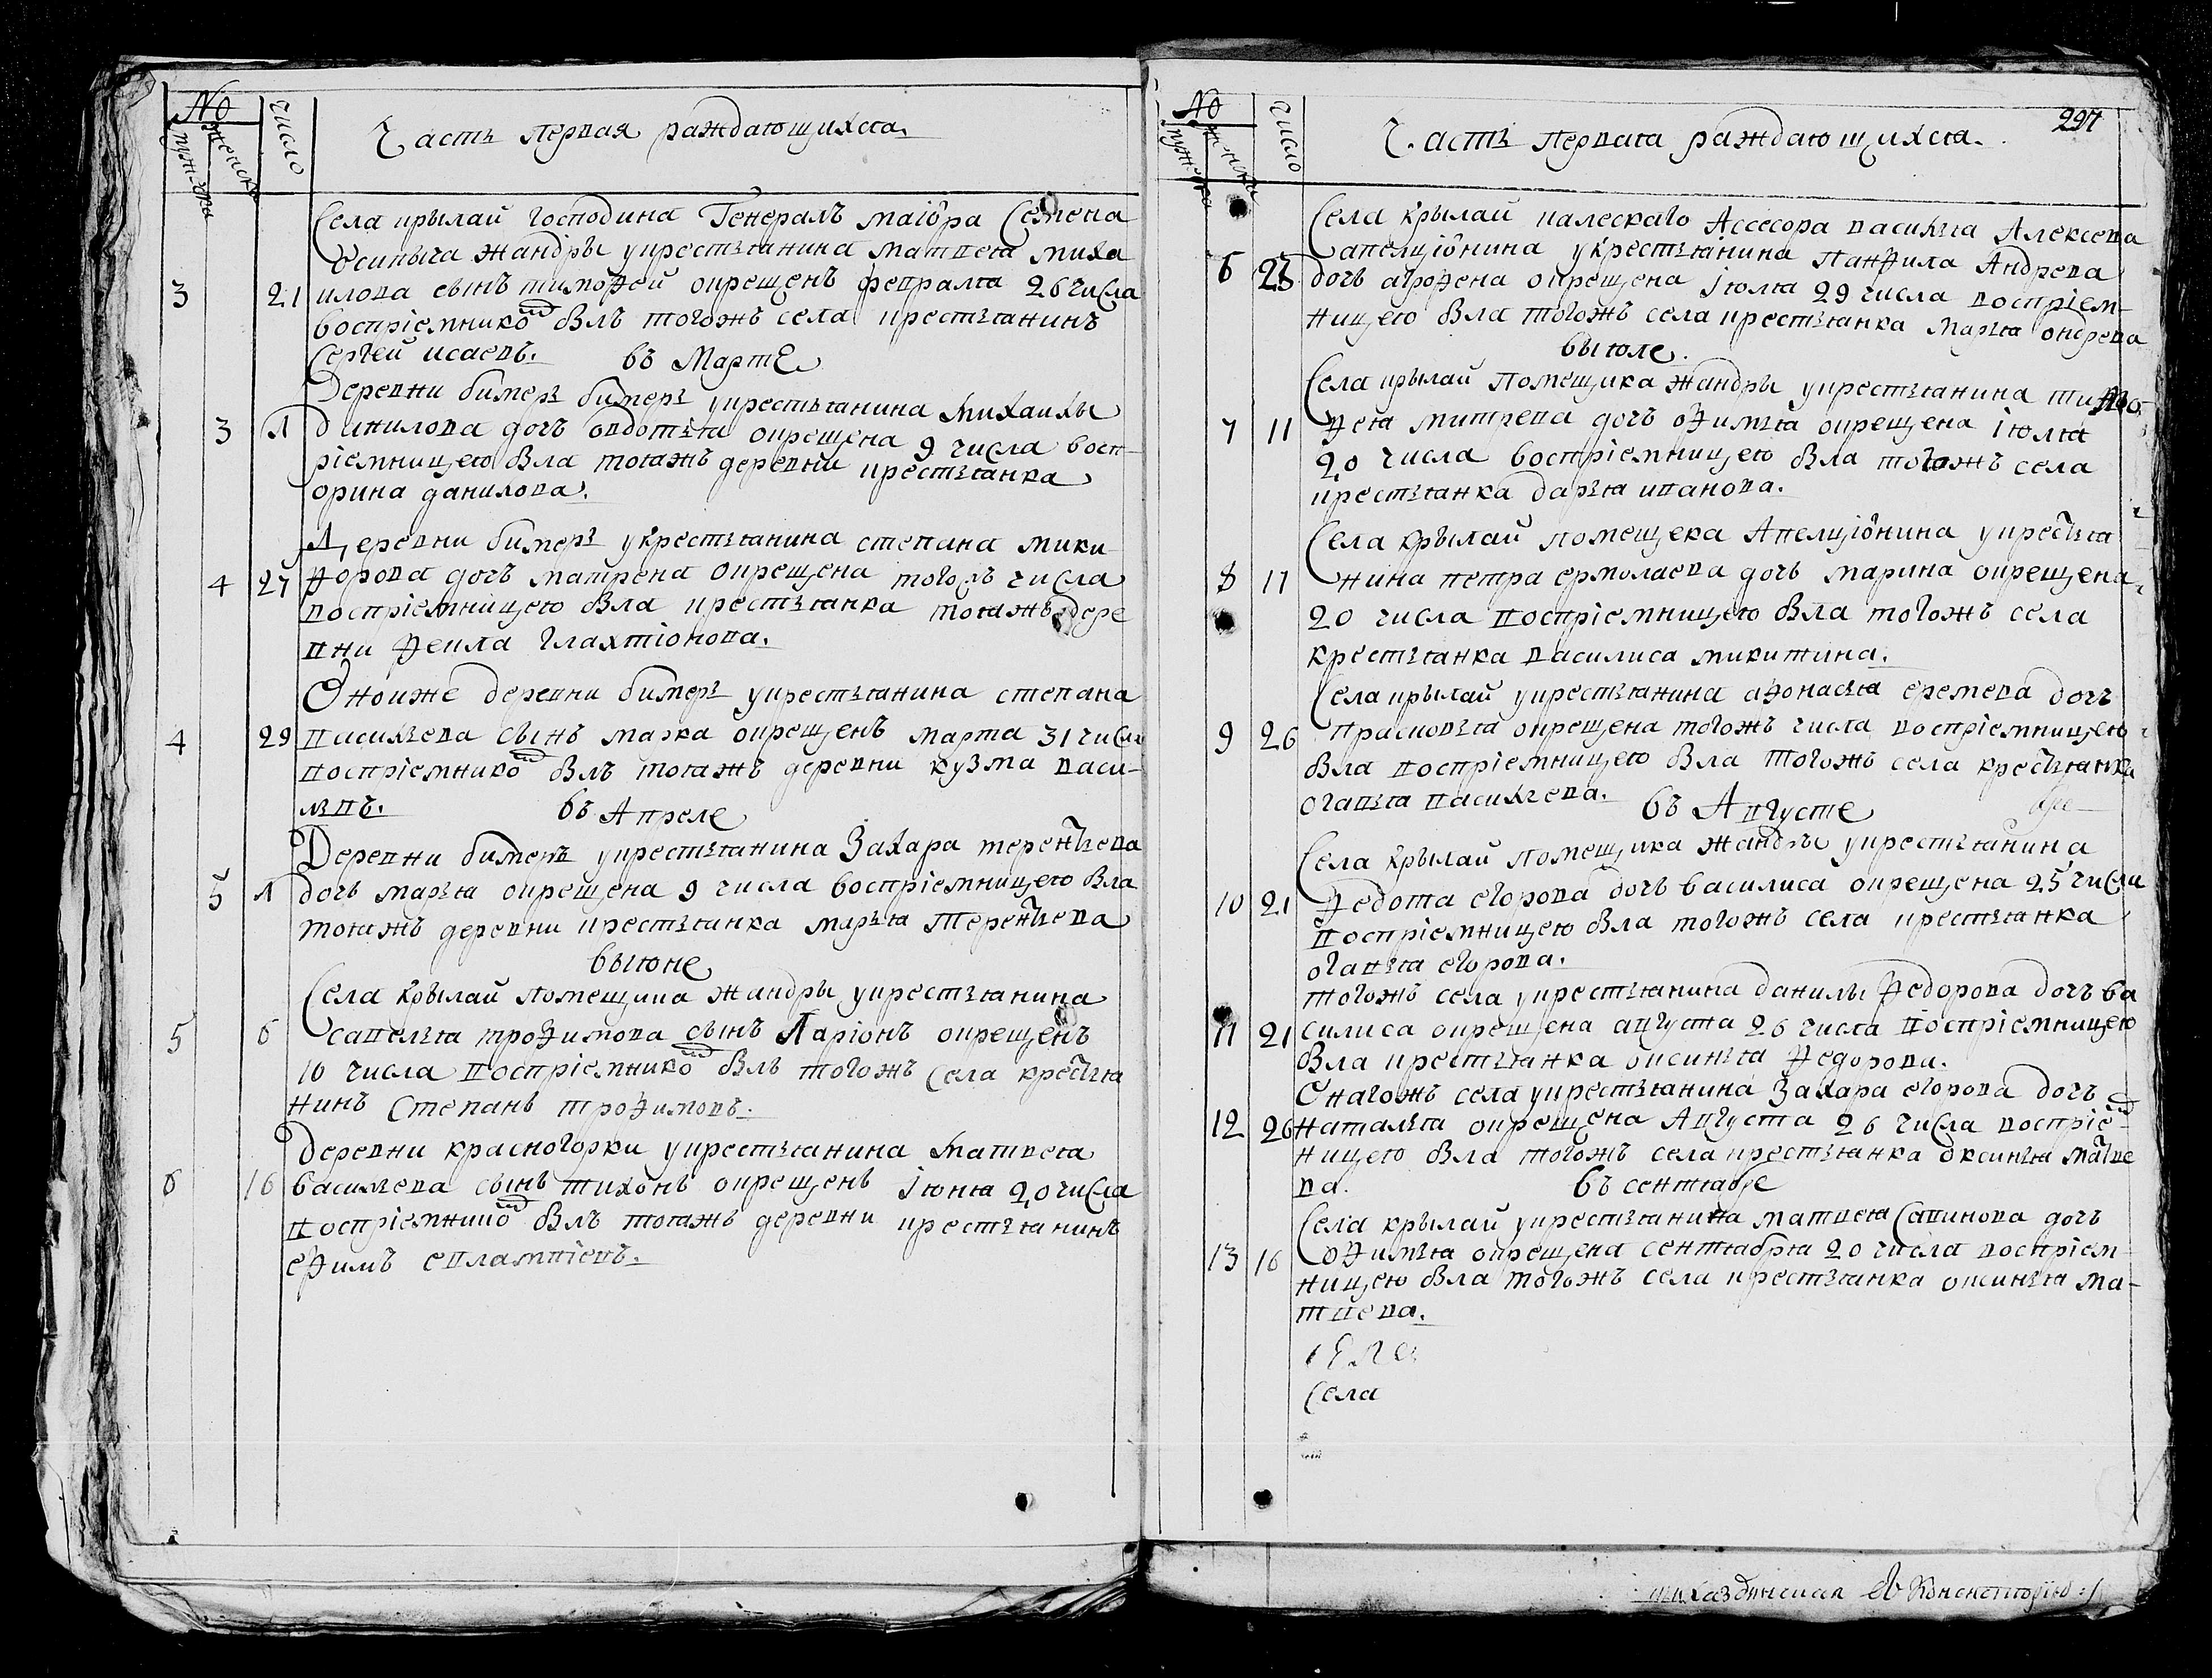 №
мужеска
женска
число
Часть первая раждающихся.
Села крылай господина Генералъ маiора Семена
Осипыча жандры у крестьянина матвея миха
3 21 илова сынъ тимофей окрещенъ февраля 26 числа
воспрiемнико былъ тогожъ села крестьянинъ
Сергей исаевъ. въ Марте
Деревни бимерь бимерь у крестьянина михаилы
3 Л данилова дочь овдотья окрещена 9 числа восп
рiемницею была тояжъ деревни крестьянка
орина данилова.
Деревни бимерь укрестьянина степана мики
4 27 форова дочь матрена окрещена тогожъ числа
воспрiемницею была крестьянка тояжъ дере
вни фекла глахтiонова.
Оноиже деревни бимерь укрестьянина степана
4 29 васильева сынъ марка окрещенъ марта 31 числа
воспрiемнико былъ тояжъ деревни кузма васи-
льевъ. въ Апреле
Деревни бимерь укрестьянина Захара терентьева
5 Л дочь марья окрещена 9 числа воспрiемницею была
тояжъ деревни крестьянка марья терентьева
въ июне
Села крылай помещика жандры укрестьянина
5 6 савелья трофимова сынъ Ларiонъ окрещенъ
10 числа воспрiемнико былъ тогожъ села крестья
нинъ Степанъ трофимовъ.
Деревни красногорки укрестьянина матвея
6 16 васильева сынъ тихонъ окрещенъ iюня 20 числа
воспрiемнико былъ тояжъ деревни крестьянинъ
ефимъ евлампiевъ.
№
мужеска
женска
число
Часть первая раждающихся.
297
Села крылай калескаго Ассесора василья Алексева
Сапелцiонина укрестьянина Панфила Андрева
6 25 дочь агрофена окрещена iюля 29 числа воспрiем-
ницею была тогожъ села крестьянка марья ондрева
въ июле.
Села крылай помещика жандры укрестьянина тимо
7 11 фея митрева дочь офимья окрещена iюля
20 числа воспрiемницею была тогожъ села
крестьянка дарья иванова.
Села крылай помещека Апелцiонина укрестья
8 17 нина петра ермолаева дочь марина окрещена
20 числа воспрiемницею была тогожъ села
крестьянка василиса микитина.
Села крылай укрестьянина афонасья еремева дочь
9 26 прасковья окрещена тогожъ числа воспрiемницею
была воспрiемницею была тогожъ села крестьянка
огапья васильева. въ Августе
Села крылай помещика жандры укрестьянина
10 21 федота егорова дочь василиса окрещена 25 числа
воспрiемницею была тогожъ села крестьянка
огапья егорова.
тогожъ села укрестьянина данилы федорова дочь ва
11 21 силиса окрещена августа 26 числа воспрiемницею
была крестьянка оксинья федорова.
Онагожъ села укрестьянина Захара егорова дочь
12 26 наталья окрещена Августа 26 числа воспрiем
ницею была тогожъ села крестьянка оксинья матве
ва. въ сентябре
Села крылай укрестьянина матвея Савинова дочь
13 16 офимья окрещена сентября 20 числа воспрiем
ницею была тогожъ села крестьянка оксинья ма-
твева.
Села